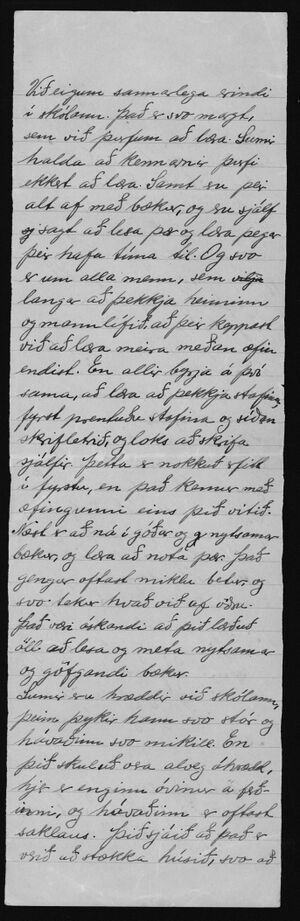 Við eigum sannarlega erindi
í skólann. Það er svo margt,
sem við þurfum að læra. Sumir
halda að kennarnir þurfi
ekkert að læra. Samt eru þeir
alt af með bækur, og eru sjálf
sagt að lesa þær og læra þegar
þeir hafa tíma til. Og svo
er um alla menn, sem
langar að þekkja heiminn
og mannlífið, að þeir keppast
við að læra meira meðan æfin
endist. En allir byrja á því
sama, að læra að þekkja stafina,
fyrst prentuðu stafina og síðan
skrifletrið, og loks að skrifa
sjálfir. Þetta er nokkuð
í fyrstu, en það kemur með
æfingunni eins og þið vitið.
Næst er að ná í góðar og nytsamar
bækur, og læra að nota þær. Það
gengur oftast miklu betur og
svo tekur hvað við af öðru.
Það væri óskandi að þið lærðuð
öll að lesa og meta nytsamar
og göfgandi bækur.
Sumir eru hræddir við skólann,
þeim þykir hann svo stór og
hávaðinn svo mikill. En
þið skuluð vera alveg óhrædd,
hjer er enginn óvinur á ferð-
inni, og hávaðinn er oftast
saklaus. Þið sjáið að það er
verið að stækka húsið, svo að